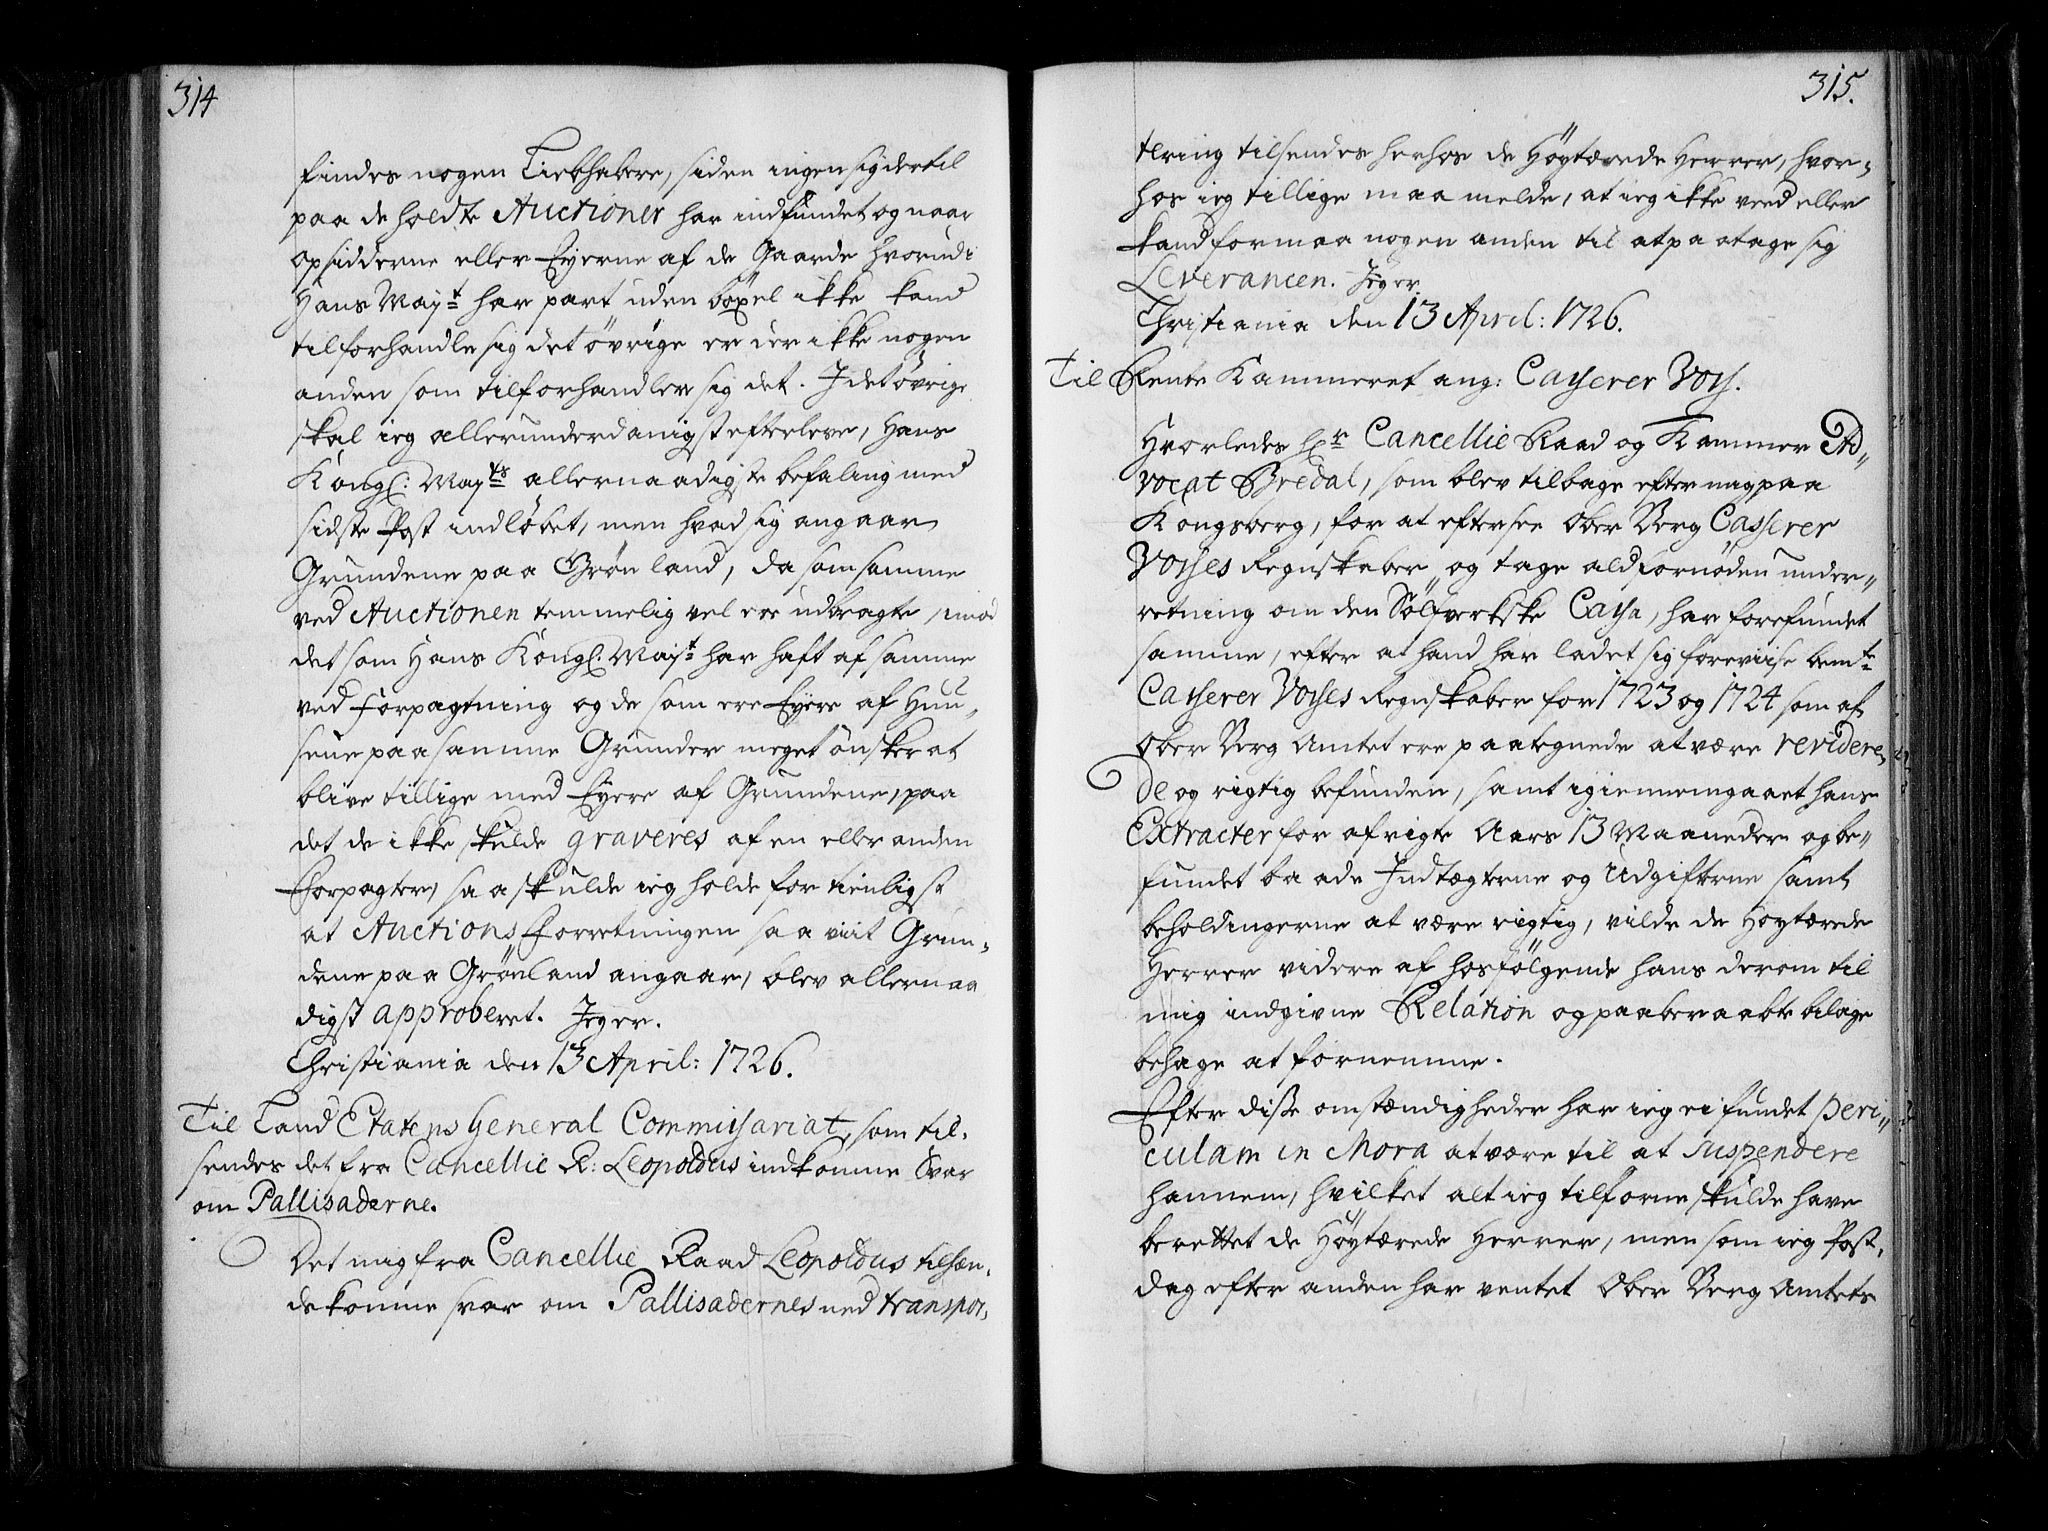 314
findes nogen Liebhabere, siden ingen sig dertil
paa de holdte Auctioner har indfundet og naar
opsidderne eller Eyerne af de Gaarde hvorudi
Hans Mayt har part uden böxel ikke kand
tilforhandle sig det övrige er der ikke nogen
anden som tilforhandler sig det. I det övrige
skal ieg allerunderdanigst efterleve, Hans
Kongl: Mayts allernaadigste befaling med
sidste Post indlöbet, men hvad sig angaar
Grundene paa Grönland, da som samme
ved Auctionen temmelig vel ere udbragte, imod
det som Hans Kongl. Mayt har haft af samme
ved forpagtning og de som ere Eyere af Huu,
sene paa samme Grunder meget önsker at
blive tillige med Eyere af Grundene, paa
det de ikke skulde graveres af en eller anden
Forpagter, saa skulde ieg holde for tienligst
at Auctions Forretningen saa viit Grun,
dene paa Grönland angaar, blev allernaa
digst approberet. Jeg er.
Christiania den 13 April: 1726.
Til Land Etatens General Commissariat, som til,
sendes det fra Cancellie R: Leopoldus indkomne Svar
om Pallisaderne.
Det mig fra Cancellie Raad Leopoldus tilsen,
de komne svar om Pallisadernes ned transpor,
315.
tering tilsendes herhos de Höytærede Herrer, hvor,
hos ieg tillige maa melde, at ieg ikke veed eller
kand formaa nogen anden til at paatage sig
Leverancen. Jeg er.
Christiania den 13 April: 1726.
Til Rente Kammeret ang: Casserer Voss.
Hvorledes Hr Cancellie Raad og Kammer Ad,
vocat Bredal, som blev tilbage efter mig paa
Kongsberg, for at eftersee Ober Berg Casserer
Vosses Regnskaber og tage ald fornöden under,
retning om den Sölfverkske Cassa, har forefundet
samme, efter at hand har ladet sig foreviise bemte
Casserer Vosses Regnskaber for 1723 og 1724 som af
Ober Berg Amtet ere paategnede at være revidere,
de og rigtig befunden, samt igiennemgaaet hans
Extracter for afvigte Aars 13 Maaneder og be,
fundet baade Indtægterne og Udgifterne samt
beholdingerne at være rigtig, vilde de Höytærede
Herrer videre af hosfölgende hans derom til
mig indgivne Relation og paaberaabte bilage
behage at fornemme.
Efter disse omstændigheder har ieg ei fundet peri,
culam in Mora at være til at suspendere
hannem, hvilket alt ieg tilforne skulde have
berettet de Höytærede Herrer, men som ieg Post,
dag efter anden har ventet Ober Berg Amtets